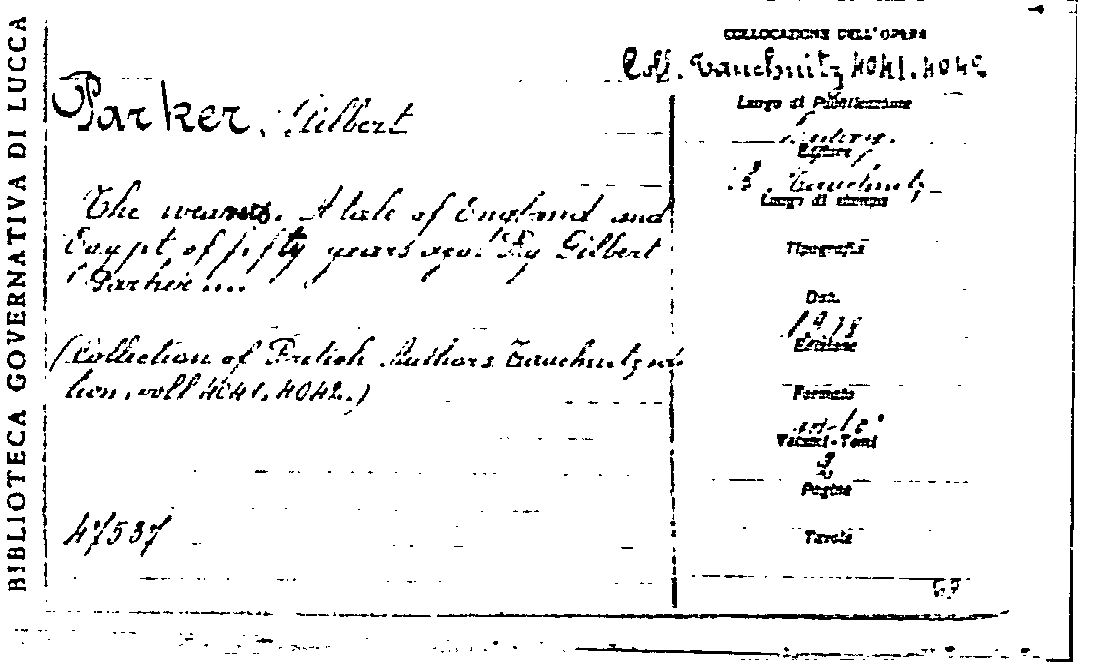 BIBLIOTECA GOVERNATIVA DI LUCCA
COLLOCAZIONE DELL'OPERA
Coll. Tauchnitz 4041.4042
Parker, Gilbert
The weavers. A tale of England and
Egypt of fifty years ago. By Gilbert
Parker ...
(Collection of British Authors Tauchnitz edi
tion, voll 4041.4042.)
47537
Luogo di Pubblicazione
Editore
B. Tauchnitz
Luogo di stampa
Tipografia
Data
Edizione
Formato
Volumi-Tomi
2
Pagine
Tavole